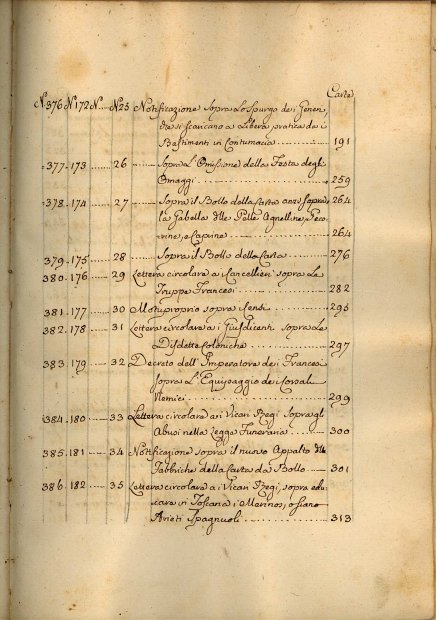 Carte
N.376 N.172 N...... N.25 Notificazione sopra lo Spurgo dei Generi,
che si scaricano a Libera pratica da i
Bastimenti in Contumacia ...... 191
377. 173 ...... 26 ...... Sopra l'Omissione della Festa degli
Omaggi ...... 259
378. 174 ...... 27 ...... Sopra il Bollo della Carta anzi sopra 264
la Gabella dlle Pelle Agnelline, Peco-
rine, e Caprine ...... 264
379. 175 ...... 28 ...... Sopra il Bollo della Carta ...... 276
380. 176 ...... 29 Lettera circolare a i Cancellieri sopra Le
Truppe Francesi ...... 282
381. 177 ...... 30 Motuproprio sopra i Censi ...... 295
382. 178 ...... 31 Lettera circolare a i Giusdicenti sopra Le
Disdette Coloniche ...... 297
383. 179 ...... 32 Decreto dell'Imperatore dei Francesi
sopra l'Equipaggio dei Corsali
Nemici ...... 299
384. 180 ...... 33 Lettera circolare ai Vicari Regi sopra gl'
Abusi nella Legge Funeraria ...... 300
385. 181 ...... 34 Notificazione sopra il nuovo Appalto dlle
Fabbriche della Carta da Bollo ...... 301
386. 182 ...... 35 Lettera circolare a i Vicari Regi, sopra edu-
care in Toscana i Merinos, o siano
Arieti Spagnuoli ...... 313